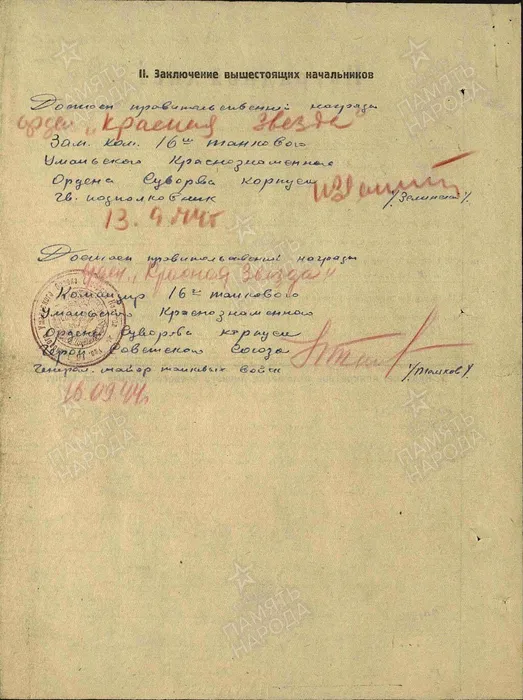 II. Заключение вышестоящих начальников
Достоин правительственной награды
орден „Красная Звезда
Зам. ком. 16го танкового
Уманьского Краснознаменного
Ордена Суворова корпуса
гв. подполковник
13.9.44г
Достоин правительственной награды
„Красная Звезда"
Командир 16го танкового
Уманьского Краснознаменного
Ордена Суворова корпуса
Герой Советского Союза
Генерал-майор танковых войск
16.09.44г.
ПАМЯТЬ НАРОДА